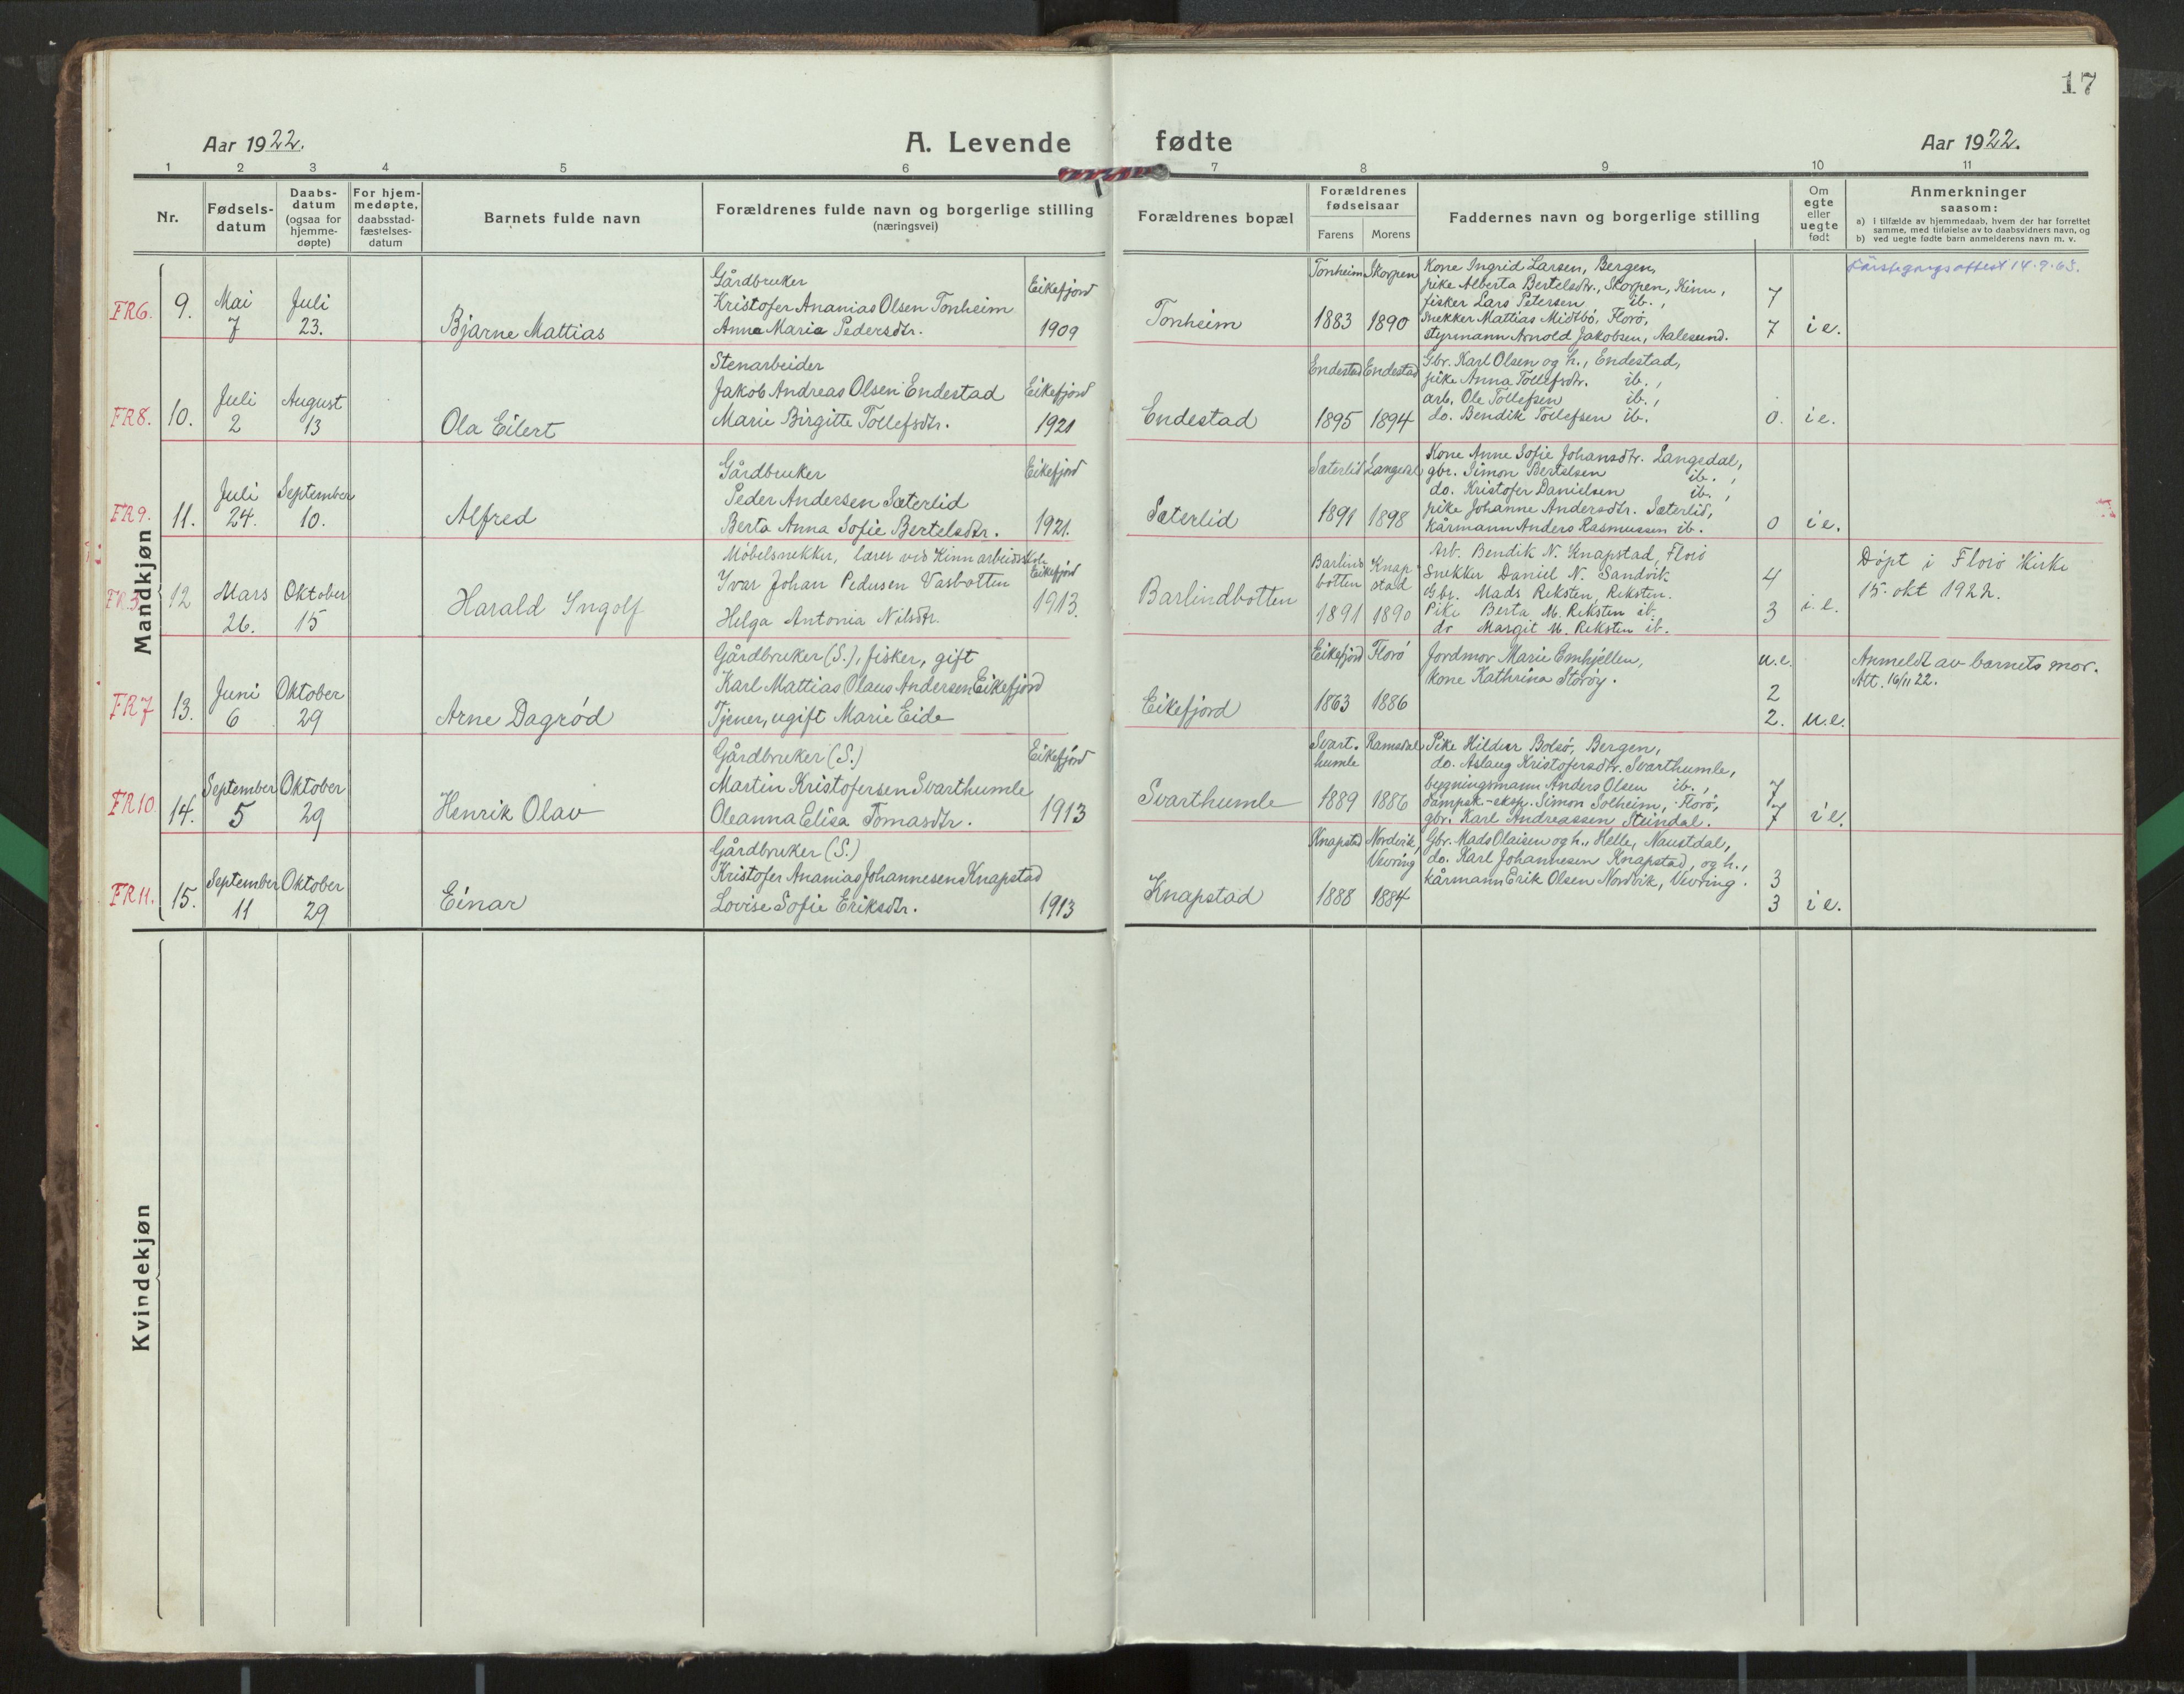 17
Aar 1922.
A. Levende fødte
Aar 1922.
1 2 3 4 5 6 7 8 9 10 11
Nr.
Fødsels-
datum
Daabs-
datum
(ogsaa for
hjemme-
døpte)
For hjem-
medøpte,
daabsstad-
fæstelses-
datum
Barnets fulde navn
Forældrenes fulde navn og borgerlige stilling
(næringsvei)
Forældrenes bopæl
Forældrenes
fødselsaar
Farens Morens
Faddernes navn og borgerlige stilling
Om
egte
eller
uegte
født
Anmerkninger
saasom:
a) I tilfælde av hjemmedaab, hvem der har forrettet
samme, med tilføielse av to daabsvidners navn, og
b) ved uegte fødte barn anmelderens navn m. v.
Mandkjøn
FR6. 9.
Mai
7
Juli
23.
Bjarne Mattias
Gårdbruker
Kristofer Ananias Olsen Tonheim
Anna Maria Pedersdtr.
Eikefjord
1909
Tonheim
Tonheim Skorpen
1883 1890
Kone Ingrid Larsen, Bergen,
pike Alberta Bertelsdtr., Skorpen, Kinn,
fisker Lars Petersen ib.,
snekker Mattias Midtbö, Florö,
styrmann Arnold Jakobsen, Aalesund.
7
7
i e.
Förstegangsattest 14.9.63.
FR8. 10.
Juli
2
August
13
Ola Eilert
Stenarbeider
Jakob Andreas Olsen Endestad
Marie Birgitte Tollefsdtr.
Eikefjord
1921
Endestad
Endestad Endestad
1895 1894
Gbr. Karl Olsen og h., Endestad,
pike Anna Tollefsdtr. ib.,
arb. Ole Tollefsen ib.,
do. Bendik Tollefsen ib.
0.
i e.
FR9. 11.
Juli
24.
September
10.
Alfred
Gårdbruker
Peder Andersen Sæterlid
Berta Anna Sofie Bertelsdtr.
Eikefjord
1921.
Sæterlid
Sæterlid Langedal
1891 1898
Kone Anne Sofie Johansdtr. Langedal,
gbr. Simon Bertelsen ib.,
do. Kristofer Danielsen ib.,
pike Johanne Andersdtr. Sæterlid,
kårmann Anders Rasmussen ib.
0
i e.
FR5. 12
Mars
26.
Oktober
15
Harald Ingolf
Møbelsnekker, lærer ved Kinn arbeidsskole
Yvar Johan Pedersen Vasbotten
Helga Antonia Nilsdtr.
Eikefjord
1913.
Barlindbotten
Barlind
botten
Knap
stad
1891 1890
Arb. Bendik N. Knapstad, Florö
Snekker Daniel N. Sandvik
Gbr. Mads Reksten, Reksten.
Pike Berta M. Reksten ib.
do Margit M. Reksten ib.
4
3
i. e.
Döpt i Florö Kirke
15. okt 1922.
FR7 13.
Juni
6
Oktober
29
Arne Dagröd
Gårdbruker (S.), fisker, gift
Karl Mattias Olaus Andersen Eikefjord
Tjener, ugift Marie Eide
Eikefjord
Eikefjord Florö
1863 1886
Jordmor Marie Emhjellen,
kone Kathrina Storöy.
u.e.
2
2.
u.e.
Anmeldt av barnets mor.
Att. 16/11 22.
FR10 14.
September
5
Oktober
29
Henrik Olav
Gårdbruker (S.)
Martin Kristofersen Svarthumle
Oleanna Elisa Tomasdtr.
Eikefjord
1913
Svarthumle
Svart.
humle
Ramsdal
1889 1886
Pike Hildur Bolsö, Bergen,
do. Aslaug Kristofersdtr. Svarthumle,
bygningsmann Anders Olsen ib.,
dampsk.-eksp. Simon Solheim, Florö,
gbr. Karl Andreassen Steindal.
7
7
i e.
FR11. 15.
September
11
Oktober
29
Einar
Gårdbruker (S.)
Kristofer Ananias Johannesen Knapstad
Lovise Sofie Eriksdtr.
1913
Knapstad
Knapstad
Nordvik,
Vevring
1888 1884
Gbr. Mads Olaisen og h., Helle, Naustdal,
do. Karl Johannesen Knapstad, og h.,
kårmann Erik Olsen Nordvik, Vevring.
3
3
i e.
Kvindekjøn